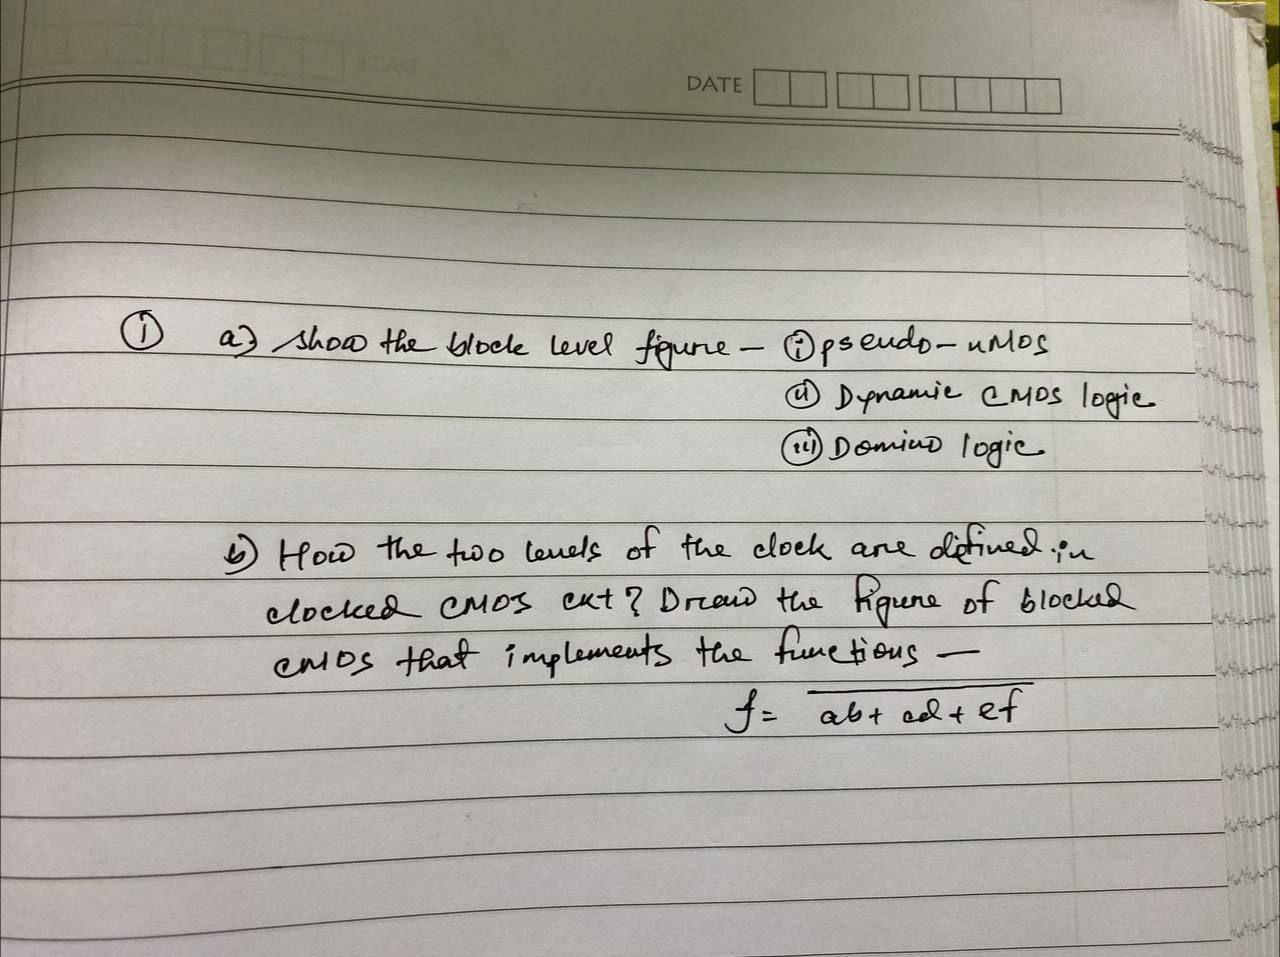 DATE
① a) show the block level figure - ⓘ pseudo-nMOS
ⓘⓘ Dynamic CMOS logic
ⓘⓘⓘ Domino logic
b) How the two levels of the clock are defined in
clocked CMOS ckt? Draw the figure of blocked
CMOS that implements the functions —
f = \overline{ab + cd + ef}